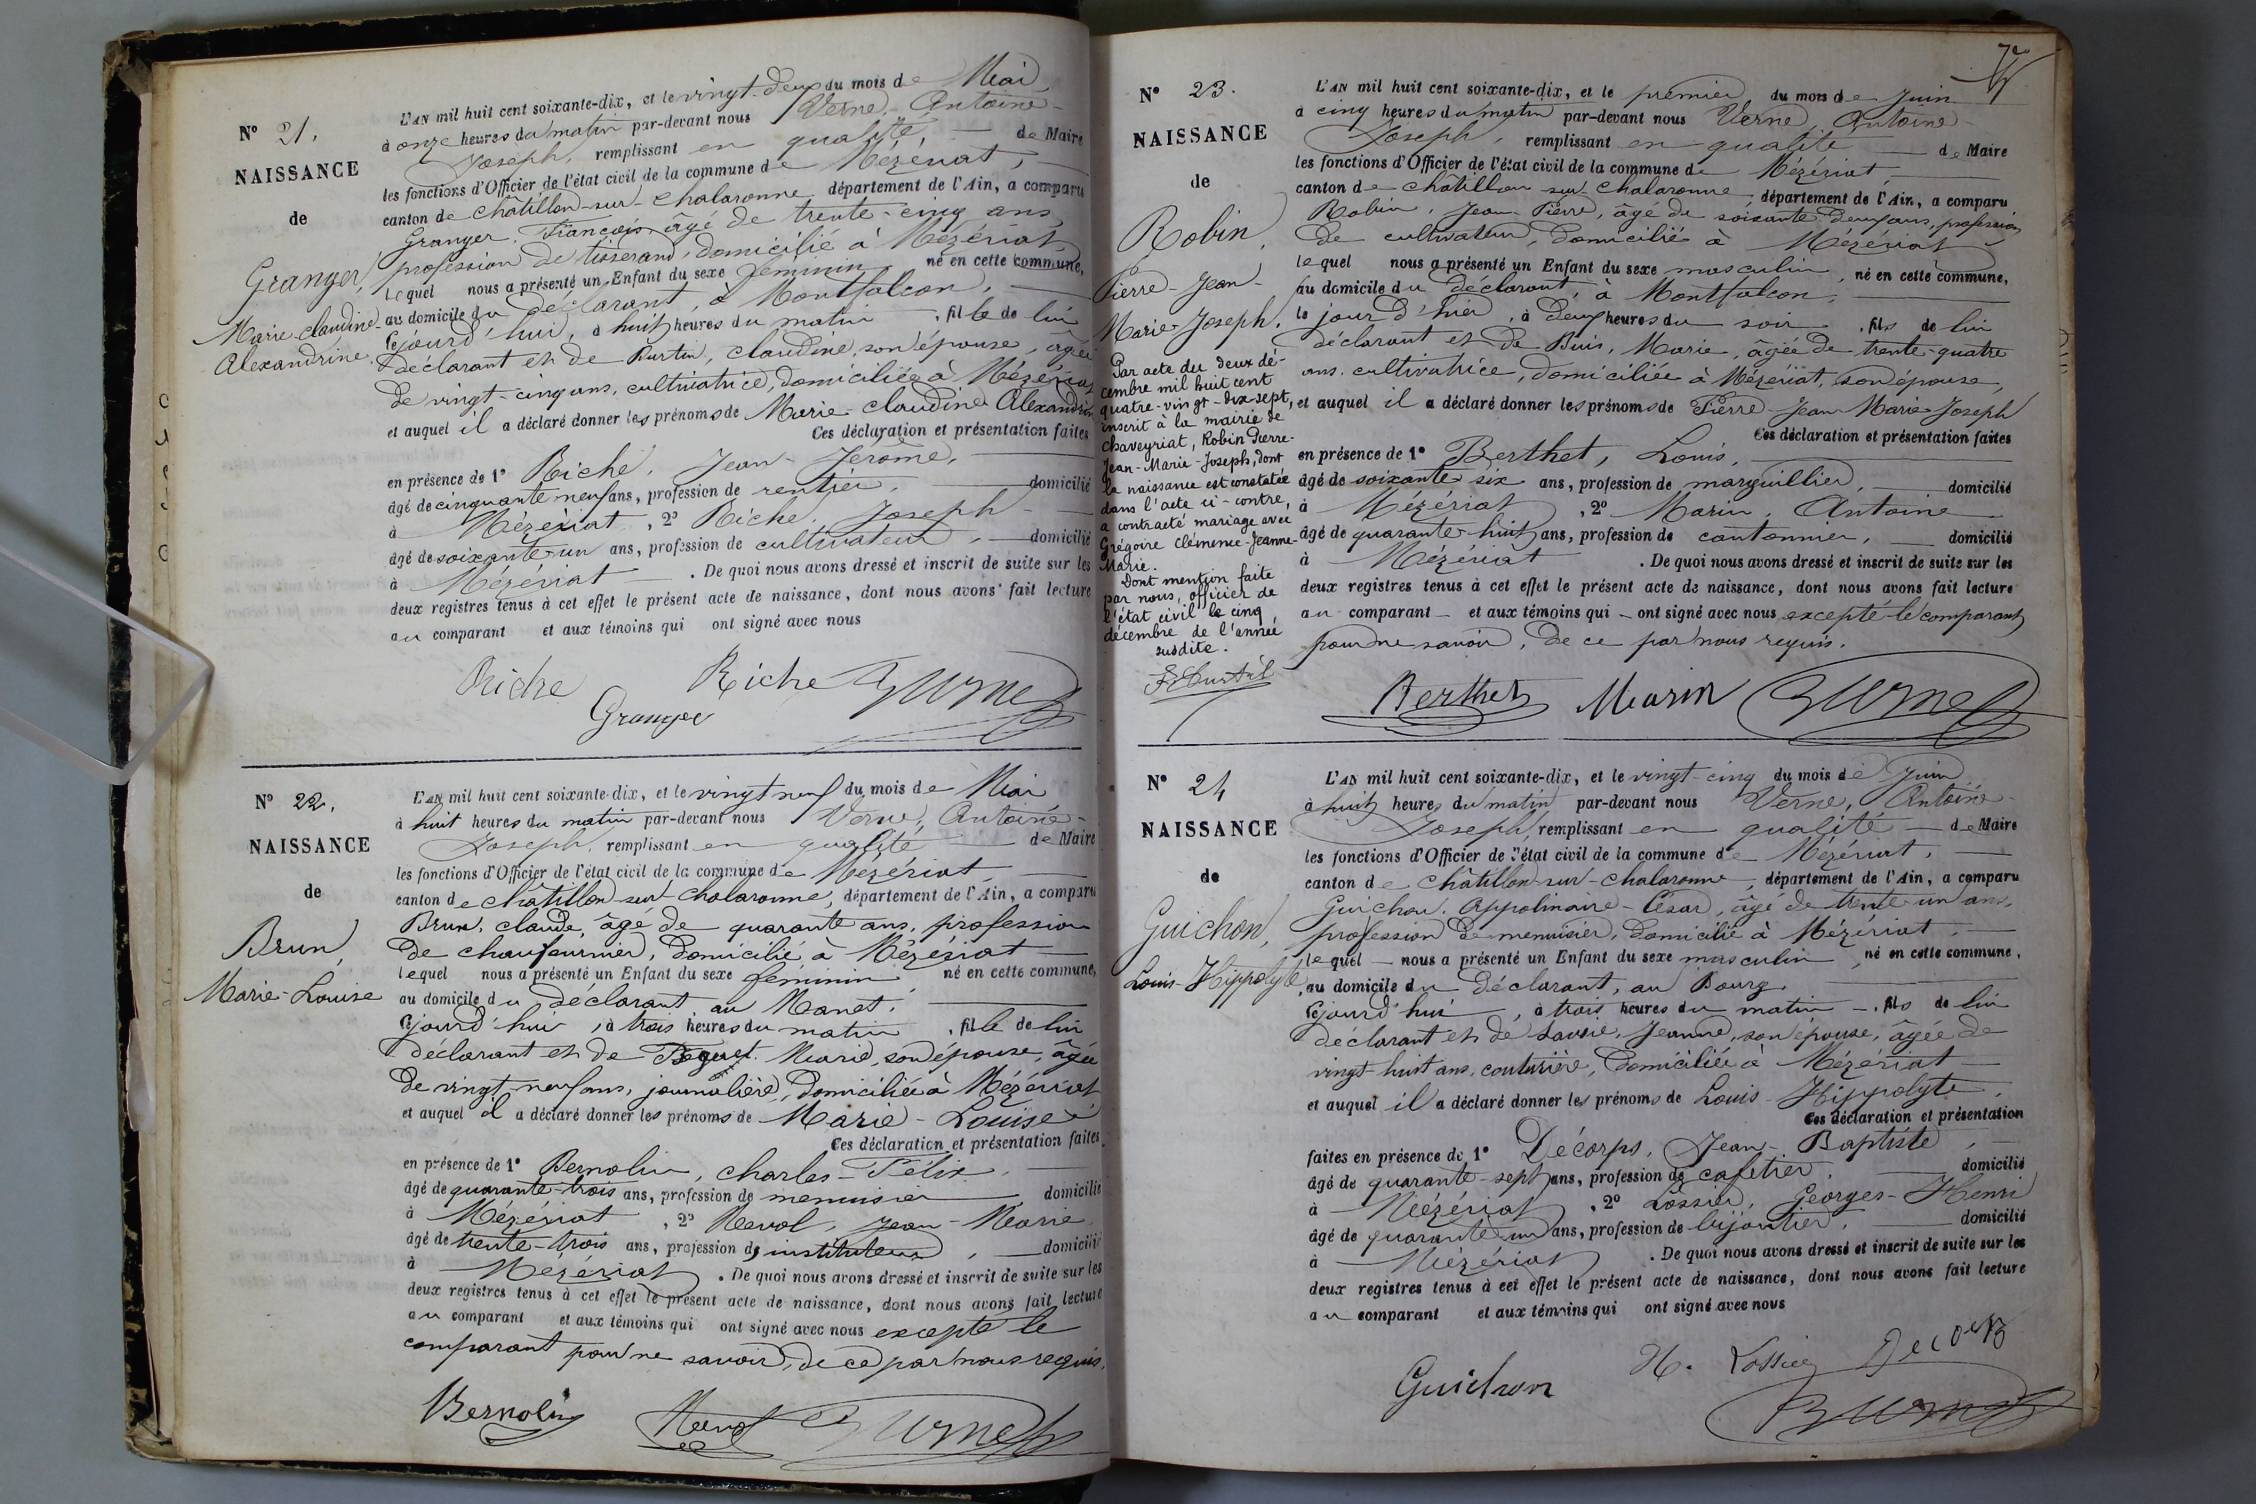 N° 21.
NAISSANCE
de
Granger,
Marie-Claudine
Alexandrine.
L'AN mil huit cent soixante-dix, et le vingt-deux du mois de Mai
à onze heures du matin par-devant nous Verne, Antoine-
Joseph, remplissant en qualité, de Maire
les fonctions d'Officier de l'état civil de la commune de Mézériat,
canton de Châtillon-sur-Chalaronne département de l'Ain, a comparu
Granger, François âgé de trente-cinq ans
profession de tisserand, domicilié à Mézériat,
lequel nous a présenté un Enfant du sexe féminin né en cette commune,
au domicile du déclarant, à Montfalcon,
cejourd'hui, à huit heures du matin, fille de lui
déclarant et de Burtin, Claudine, son épouse, âgée
de vingt-cinq ans, cultivatrice, domiciliée à Mézériat
et auquel il a déclaré donner les prénoms de Marie-Claudine Alexandrine
Ces déclaration et présentation faites
en présence de 1° Riche, Jean-Jérôme,
âgé de cinquante neuf ans, profession de rentier, domicilié
à Mézériat, 2° Riche, Joseph
âgé de soixante-un ans, profession de cultivateur, domicilié
à Mézériat. De quoi nous avons dressé et inscrit de suite sur les
deux registres tenus à cet effet le présent acte de naissance, dont nous avons fait lecture
au comparant et aux témoins qui ont signé avec nous
Riche Riche Verne
Granger
N° 22.
NAISSANCE
de
Brun,
Marie-Louise
L'AN mil huit cent soixante-dix, et le vingt neuf du mois de Mai
à huit heures du matin par-devant nous Verne, Antoine-
Joseph, remplissant en qualité de Maire
les fonctions d'Officier de l'état civil de la commune de Mézériat,
canton de Châtillon-sur-Chalaronne, département de l'Ain, a comparu
Brun, Claude, âgé de quarante ans, profession
de chaufournier, domicilié à Mézériat
lequel nous a présenté un Enfant du sexe féminin né en cette commune,
au domicile du déclarant, au Manet,
cejourd'hui, à trois heures du matin, fille de lui
déclarant et de Marie, son épouse, âgée
de vingt-neuf ans, journalière, domiciliée à Mézériat
et auquel il a déclaré donner les prénoms de Marie-Louise
Ces déclaration et présentation faites
en présence de 1° Bernolin, Charles-Félix,
âgé de quarante-trois ans, profession de menuisier domicilié
à Mézériat, 2° Revol, Jean-Marie
âgé de trente-trois ans, profession de instituteur, domicilié
à Mézériat. De quoi nous avons dressé et inscrit de suite sur les
deux registres tenus à cet effet le présent acte de naissance, dont nous avons fait lecture
au comparant et aux témoins qui ont signé avec nous excepté le
comparant pour ne savoir, de ce par nous requis.
Bernolin Revol Verne
N° 23.
NAISSANCE
de
Robin,
Pierre-Jean-
Marie-Joseph.
Par acte du deux dé-
cembre mil huit cent
quatre-vingt-dix-sept,
inscrit à la mairie de
Chaveyriat, Robin Pierre-
Jean-Marie-Joseph, dont
la naissance est constatée
dans l'acte ci-contre,
a contracté mariage avec
Grégoire Clémence-Jeanne-
Marie.
Dont mention faite
par nous, officier de
l'état civil le cinq
décembre de l'année
susdite.
L'AN mil huit cent soixante-dix, et le premier du mois de Juin
à cinq heures du matin par-devant nous Verne, Antoine-
Joseph, remplissant en qualité de Maire
les fonctions d'Officier de l'état civil de la commune de Mézériat,
canton de Châtillon-sur-Chalaronne, département de l'Ain, a comparu
Robin, Jean-Pierre, âgé de soixante-deux ans, profession
de cultivateur, domicilié à Mézériat
lequel nous a présenté un Enfant du sexe masculin, né en cette commune,
au domicile du déclarant, à Montfalcon,
le jour d'hier, à deux heures du soir, fils de lui
déclarant et de Buis, Marie, âgée de trente-quatre
ans, cultivatrice, domiciliée à Mézériat, son épouse,
et auquel il a déclaré donner les prénoms de Pierre-Jean-Marie-Joseph
Ces déclaration et présentation faites
en présence de 1° Berthet, Louis,
âgé de soixante six ans, profession de marguillier, domicilié
à Mézériat, 2° Marin, Antoine
âgé de quarante-huit ans, profession de cantonnier, domicilié
à Mézériat. De quoi nous avons dressé et inscrit de suite sur les
deux registres tenus à cet effet le présent acte de naissance, dont nous avons fait lecture
au comparant et aux témoins qui ont signé avec nous excepté le comparant
pour ne savoir, de ce par nous requis.
Berthet Marin Verne
N° 24
NAISSANCE
de
Guichon,
Louis-Hippolyte,
L'AN mil huit cent soixante-dix, et le vingt-cinq du mois de Juin
à huit heures du matin par-devant nous Verne, Antoine-
Joseph, remplissant en qualité de Maire
les fonctions d'Officier de l'état civil de la commune de Mézériat,
canton de Châtillon-sur-Chalaronne, département de l'Ain, a comparu
Guichon, Appolinaire-César, âgé de trente-un ans,
profession de menuisier, domicilié à Mézériat,
lequel nous a présenté un Enfant du sexe masculin, né en cette commune,
au domicile du déclarant, au Bourg
cejourd'hui, à trois heures du matin, fils de lui
déclarant et de Jeanne, son épouse, âgée de
vingt-huit ans, couturière, domiciliée à Mézériat
et auquel il a déclaré donner les prénoms de Louis-Hippolyte,
Ces déclaration et présentation
faites en présence de 1° Décorps, Jean-Baptiste,
âgé de quarante-sept ans, profession de cafetier, domicilié
à Mézériat, 2° Lossier, Georges-Henri
âgé de quarante un ans, profession de bijoutier, domicilié
à Mézériat. De quoi nous avons dressé et inscrit de suite sur les
deux registres tenus à cet effet le présent acte de naissance, dont nous avons fait lecture
au comparant et aux témoins qui ont signé avec nous
Guichon H. Lossier Decorps
Verne